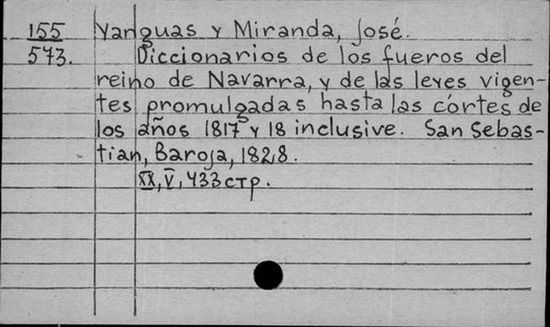 155 Yanguas y Miranda, José.
573. Diccionarios de los fueros del
reino de Navarra, y de las leyes vigen-
tes promulgadas hasta las córtes de
los años 1817 y 18 inclusive. San Sebas-
tian, Baroja, 1828.
XX, V, 433 стр.